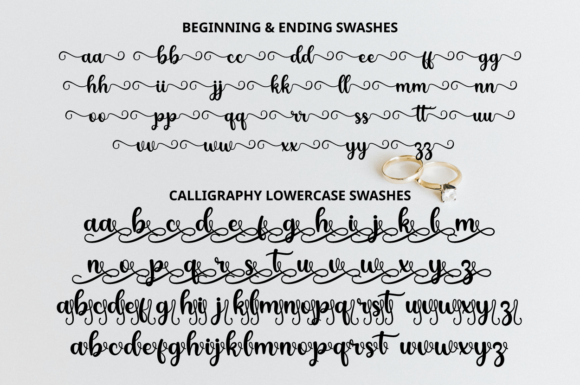 BEGINNING & ENDING SWASHES
aa bb cc dd ee ff gg
hh ii jj kk ll mm nn
oo pp qq rr ss tt uu
vv ww xx yy zz
CALLIGRAPHY LOWERCASE SWASHES
aa b c d e f g h i j k l m
n o p q r s t u v w x y z
abcdefghijklmnopqrst uvwxyz
abcdefghijklmnopqrst uvwxyz